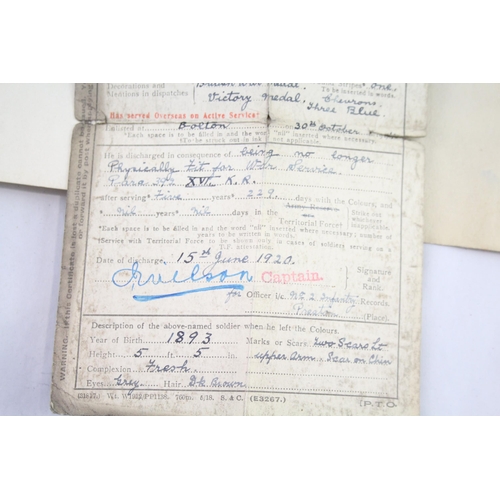 Decorations and
Medals in dispatches
British War Medal.
Victory medal,
one,
Chevrons,
Three Blue
To be inserted in words.
Has served Overseas on Active Service!
Enlisted at Bolton 30th October
*Each space is to be filled in and the word "nil" inserted where necessary.
applicable.
He is discharged in consequence of being no longer
Physically fit for War Service.
Para 392 XVI. K.R.
after serving* Five years* 229 days with the Colours, and
*Nil years* Nil days in the Army Reserve Territorial Force†
*Each space is to be filled in and the word "nil" inserted where necessary.
†Service with Territorial Force to be shown only in cases of soldiers serving on a
T.F. attestation.
Date of discharge 15th June 1920.
Captain.
Signature and Rank.
for Officer i/c No 2 Infantry Records.
Preston (Place).
Description of the above-named soldier when he left the Colours.
Year of Birth 1893 Marks or Scars Two Scars Lt
Height 5 ft. 5 in. upper arm. Scar on Chin
Complexion Fresh
Eyes Grey Hair Dk Brown
5/18. B. & C. (E3267.) [P.T.O.
WARNING.—If this Certificate is lost a duplicate cannot